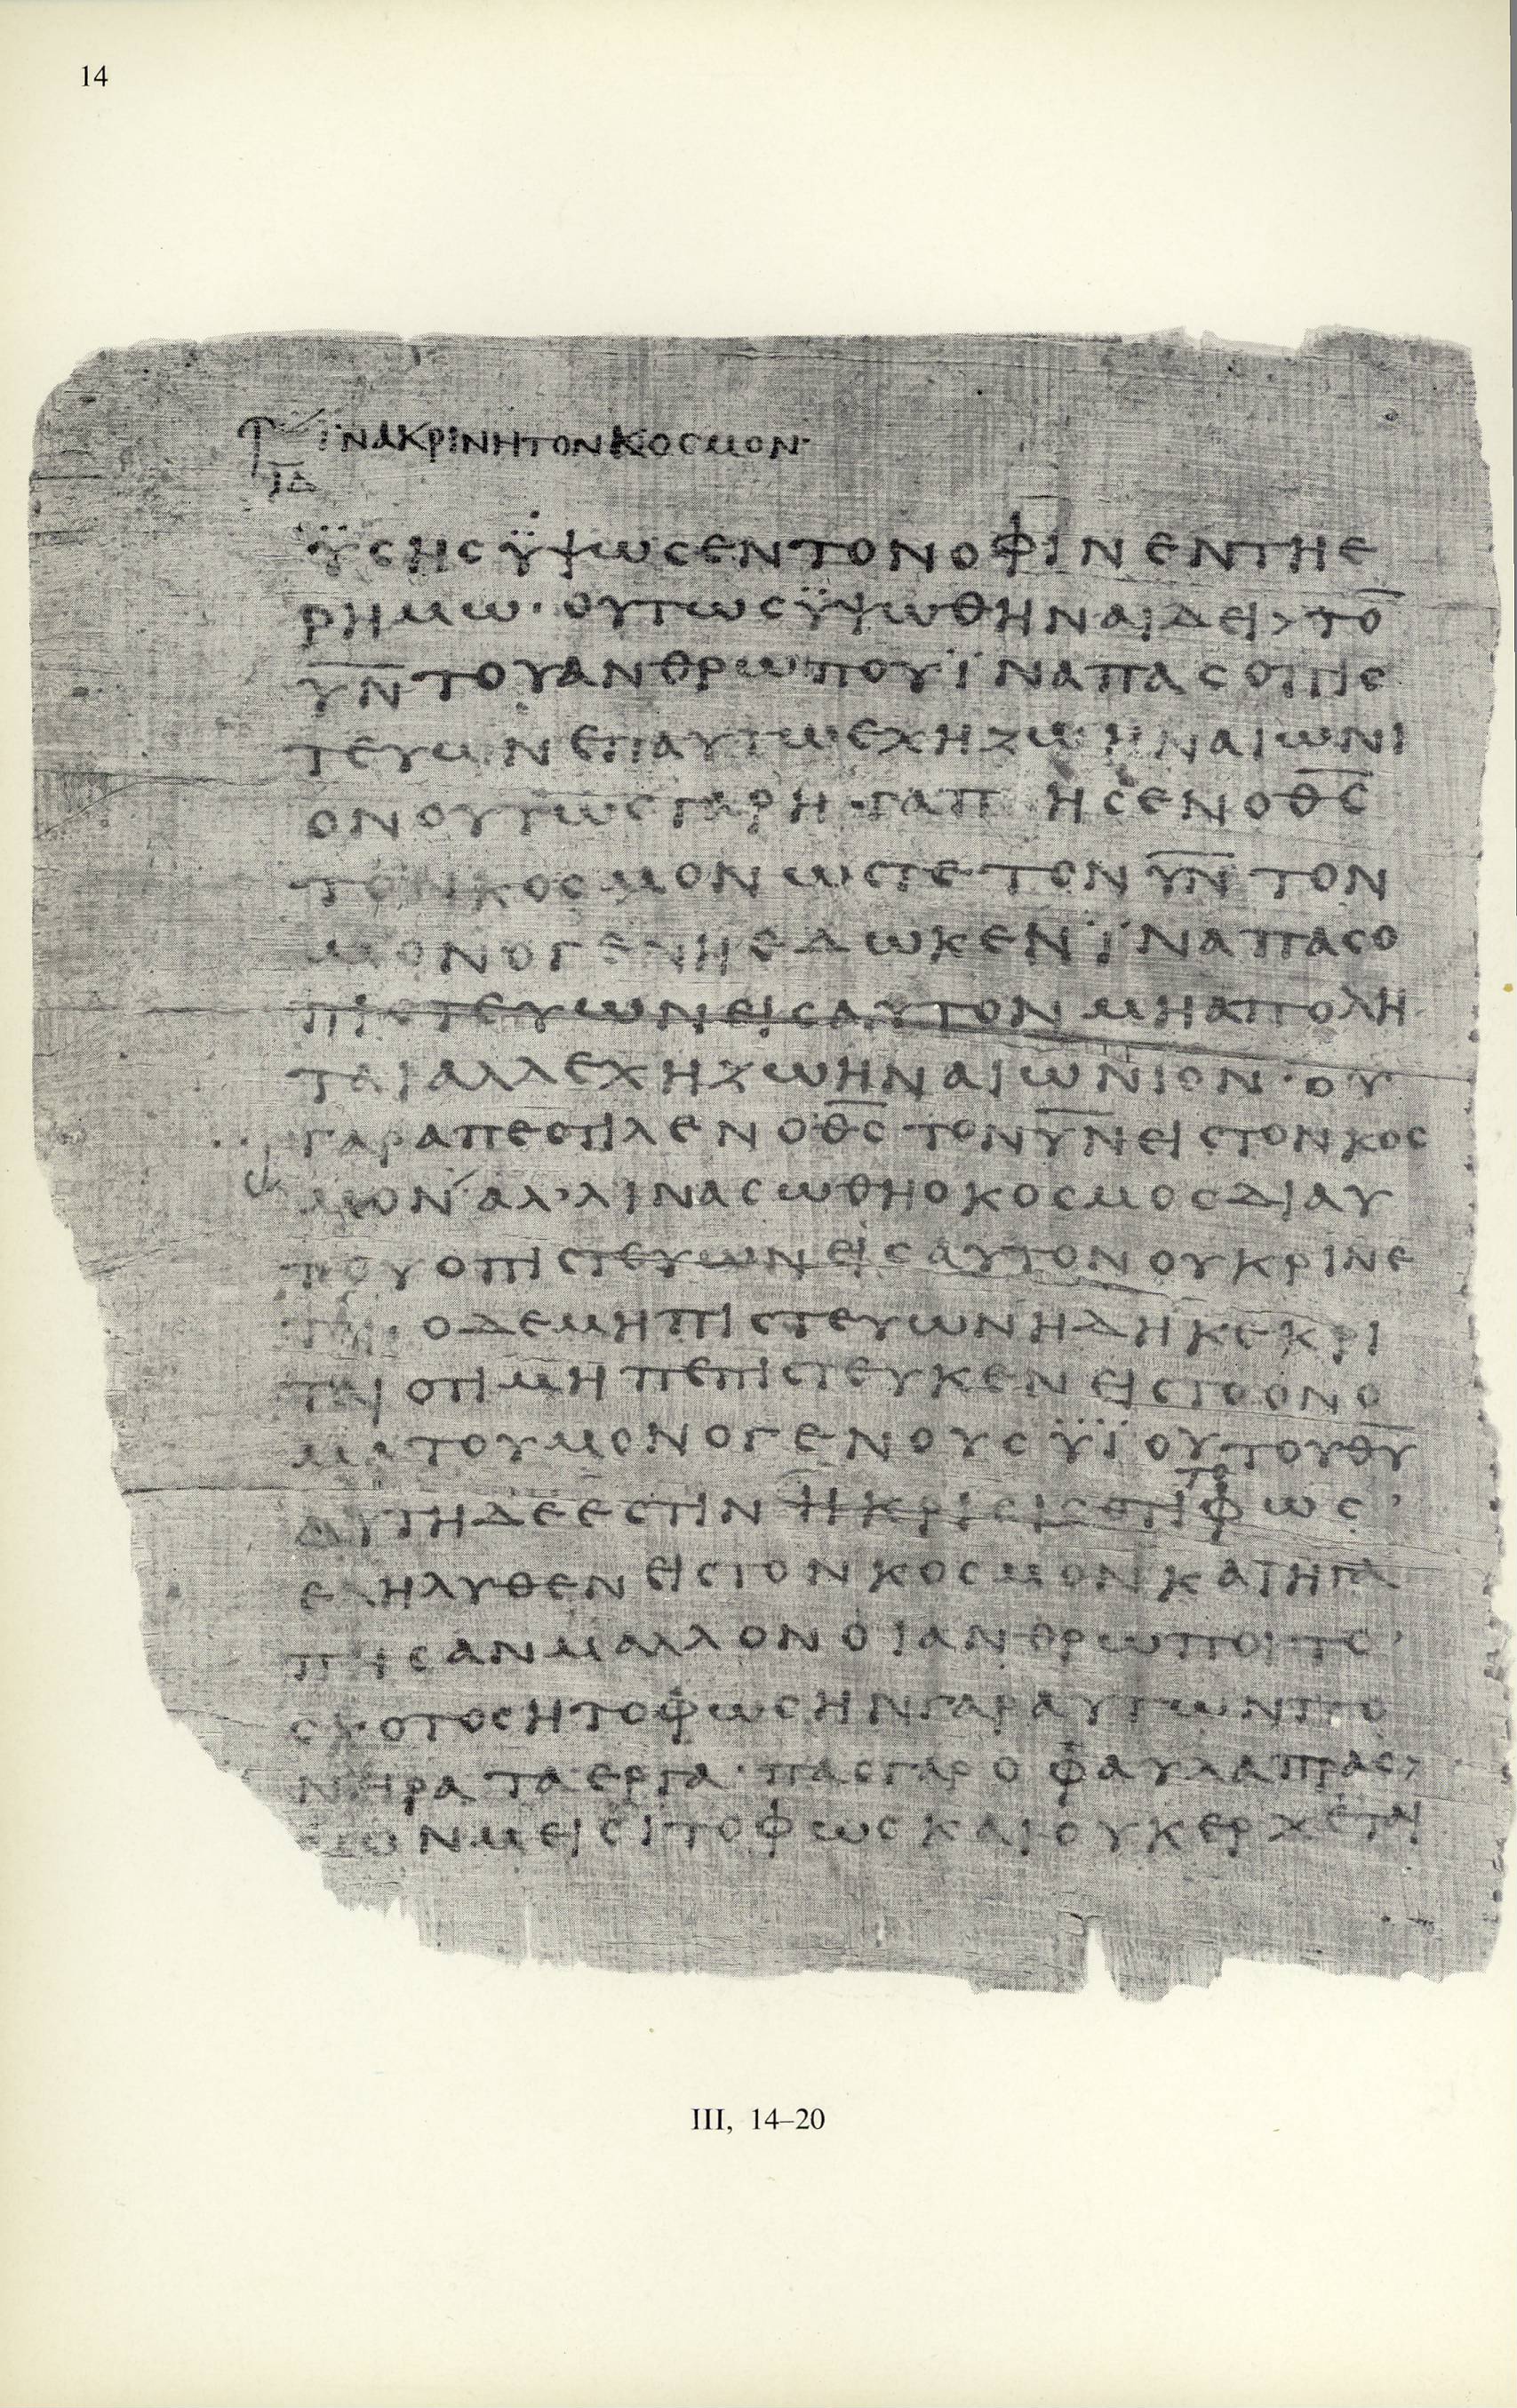 14
ϊνακρινητονκοσμον·
ι̅δ̅
ϋσησϋψωσεντονοφινεντηε
ρημω·ουτωσϋψωθηναιδει>το̅
υ̅ν̅τουανθρωπουϊναπασοπισ
τευωνεπαυτωεχηζωηναιωνι
ονουτωσγαρηγαπησενοθ̅σ̅
τονκοσμονωστετονυ̅ν̅τον
μονογενηεδωκενϊναπασο
πιστευωνεισαυτονμηαπολη
ταιαλλεχηζωηναιωνιον·ου
γαραπεστιλενοθ̅σ̅τονυ̅ν̅εισ τονκοσ
μον´αλ’λινασωθηοκοσμοσδιαυ
τουοπιστευωνεισαυτονουκρινε
ται·οδεμηπιστευωνηδηκεκρι
ταιοτιμηπεπιστευκενειστοονο
ματουμονογενουσϋϊουτουθ̅υ̅
αυτηδεεστινηκρισισοτιτοφωσ’
εληλυθενειστονκοσμονκαιηγα
πησανμαλλονοιανθρωποιτο’
σκοτοσητοφωσηνγαραυτωνπο
νηραταεργα·πασγαροφαυλαπρασ>
σωνμεισιτοφωσκαιουκερχεται
III, 14–20